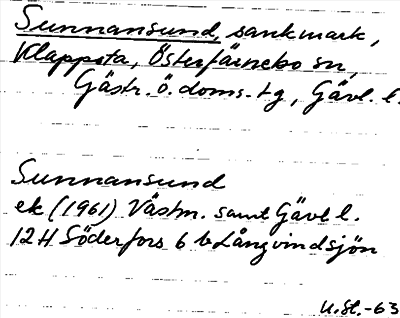 Sunnansund, sankmark,
Klappsta, Österfärnebo sn,
Gästr. ö. doms. tg, Gävl. l.
Sunnansund
ek (1961) Västm. samt Gävl l.
12H Söderfors 6 b Långvindsjön
U.St.-63